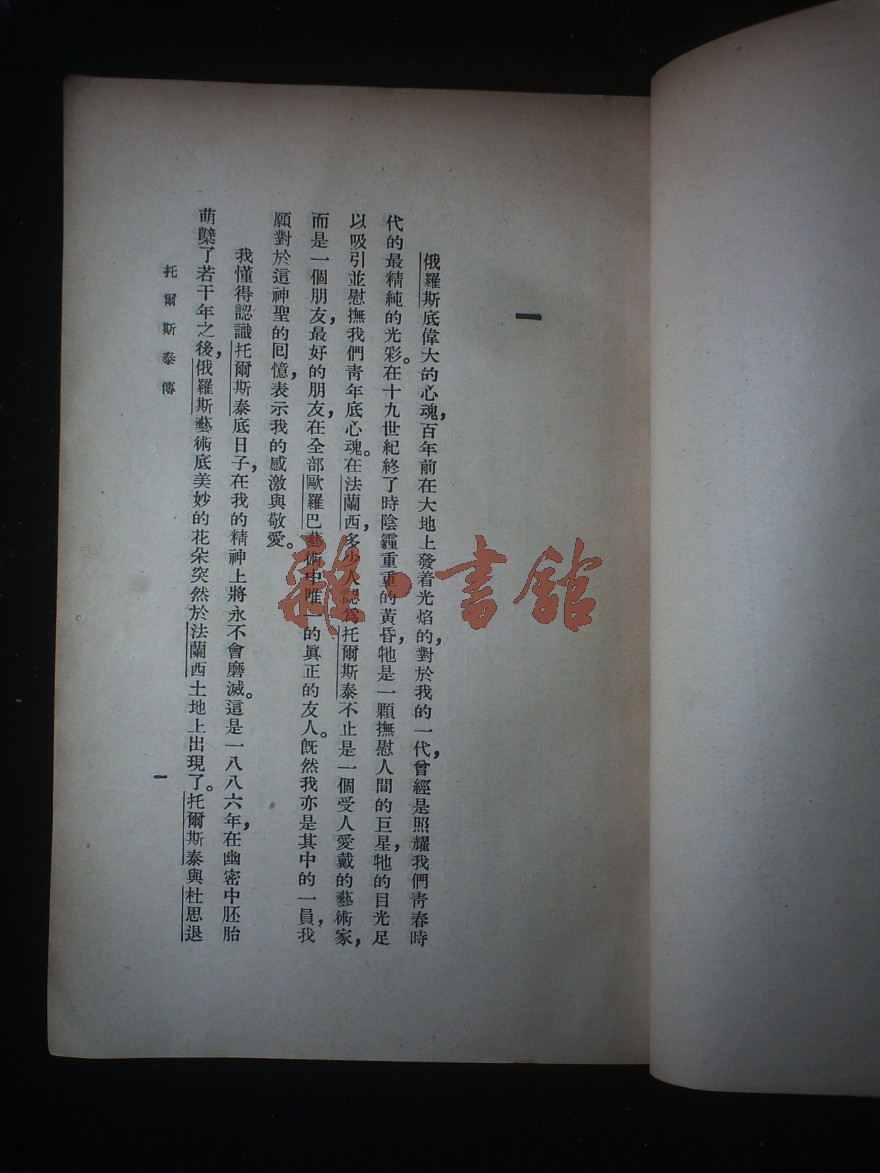 一
俄羅斯底偉大的心魂，百年前在大地上發着光焰的，對於我的一代，曾經是照耀我們青春時
代的最精純的光彩。在十九世紀終了時陰霾重重的黃昏，牠是一顆撫慰人間的巨星，牠的目光足
以吸引並慰撫我們青年底心魂。在法蘭西，多少人認為托爾斯泰不止是一個受人愛戴的藝術家，
而是一個朋友，最好的朋友，在全部歐羅巴藝術中唯一的眞正的友人。旣然我亦是其中的一員，我
願對於這神聖的囘憶，表示我的感激與敬愛。
我懂得認識托爾斯泰底日子，在我的精神上將永不會磨滅。這是一八八六年，在幽密中胚胎
萌櫱了若干年之後，俄羅斯藝術底美妙的花朵突然於法蘭西土地上出現了。托爾斯泰與杜思退
托爾斯泰傳
一
雜·書館